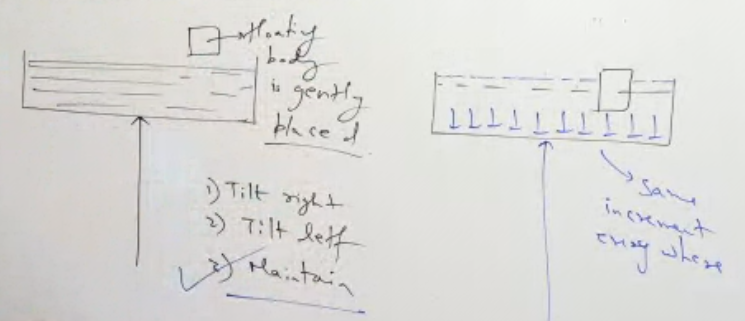 floating
body
is gently
placed
1) Tilt right
2) Tilt left
3) Maintain
same
increment
every where